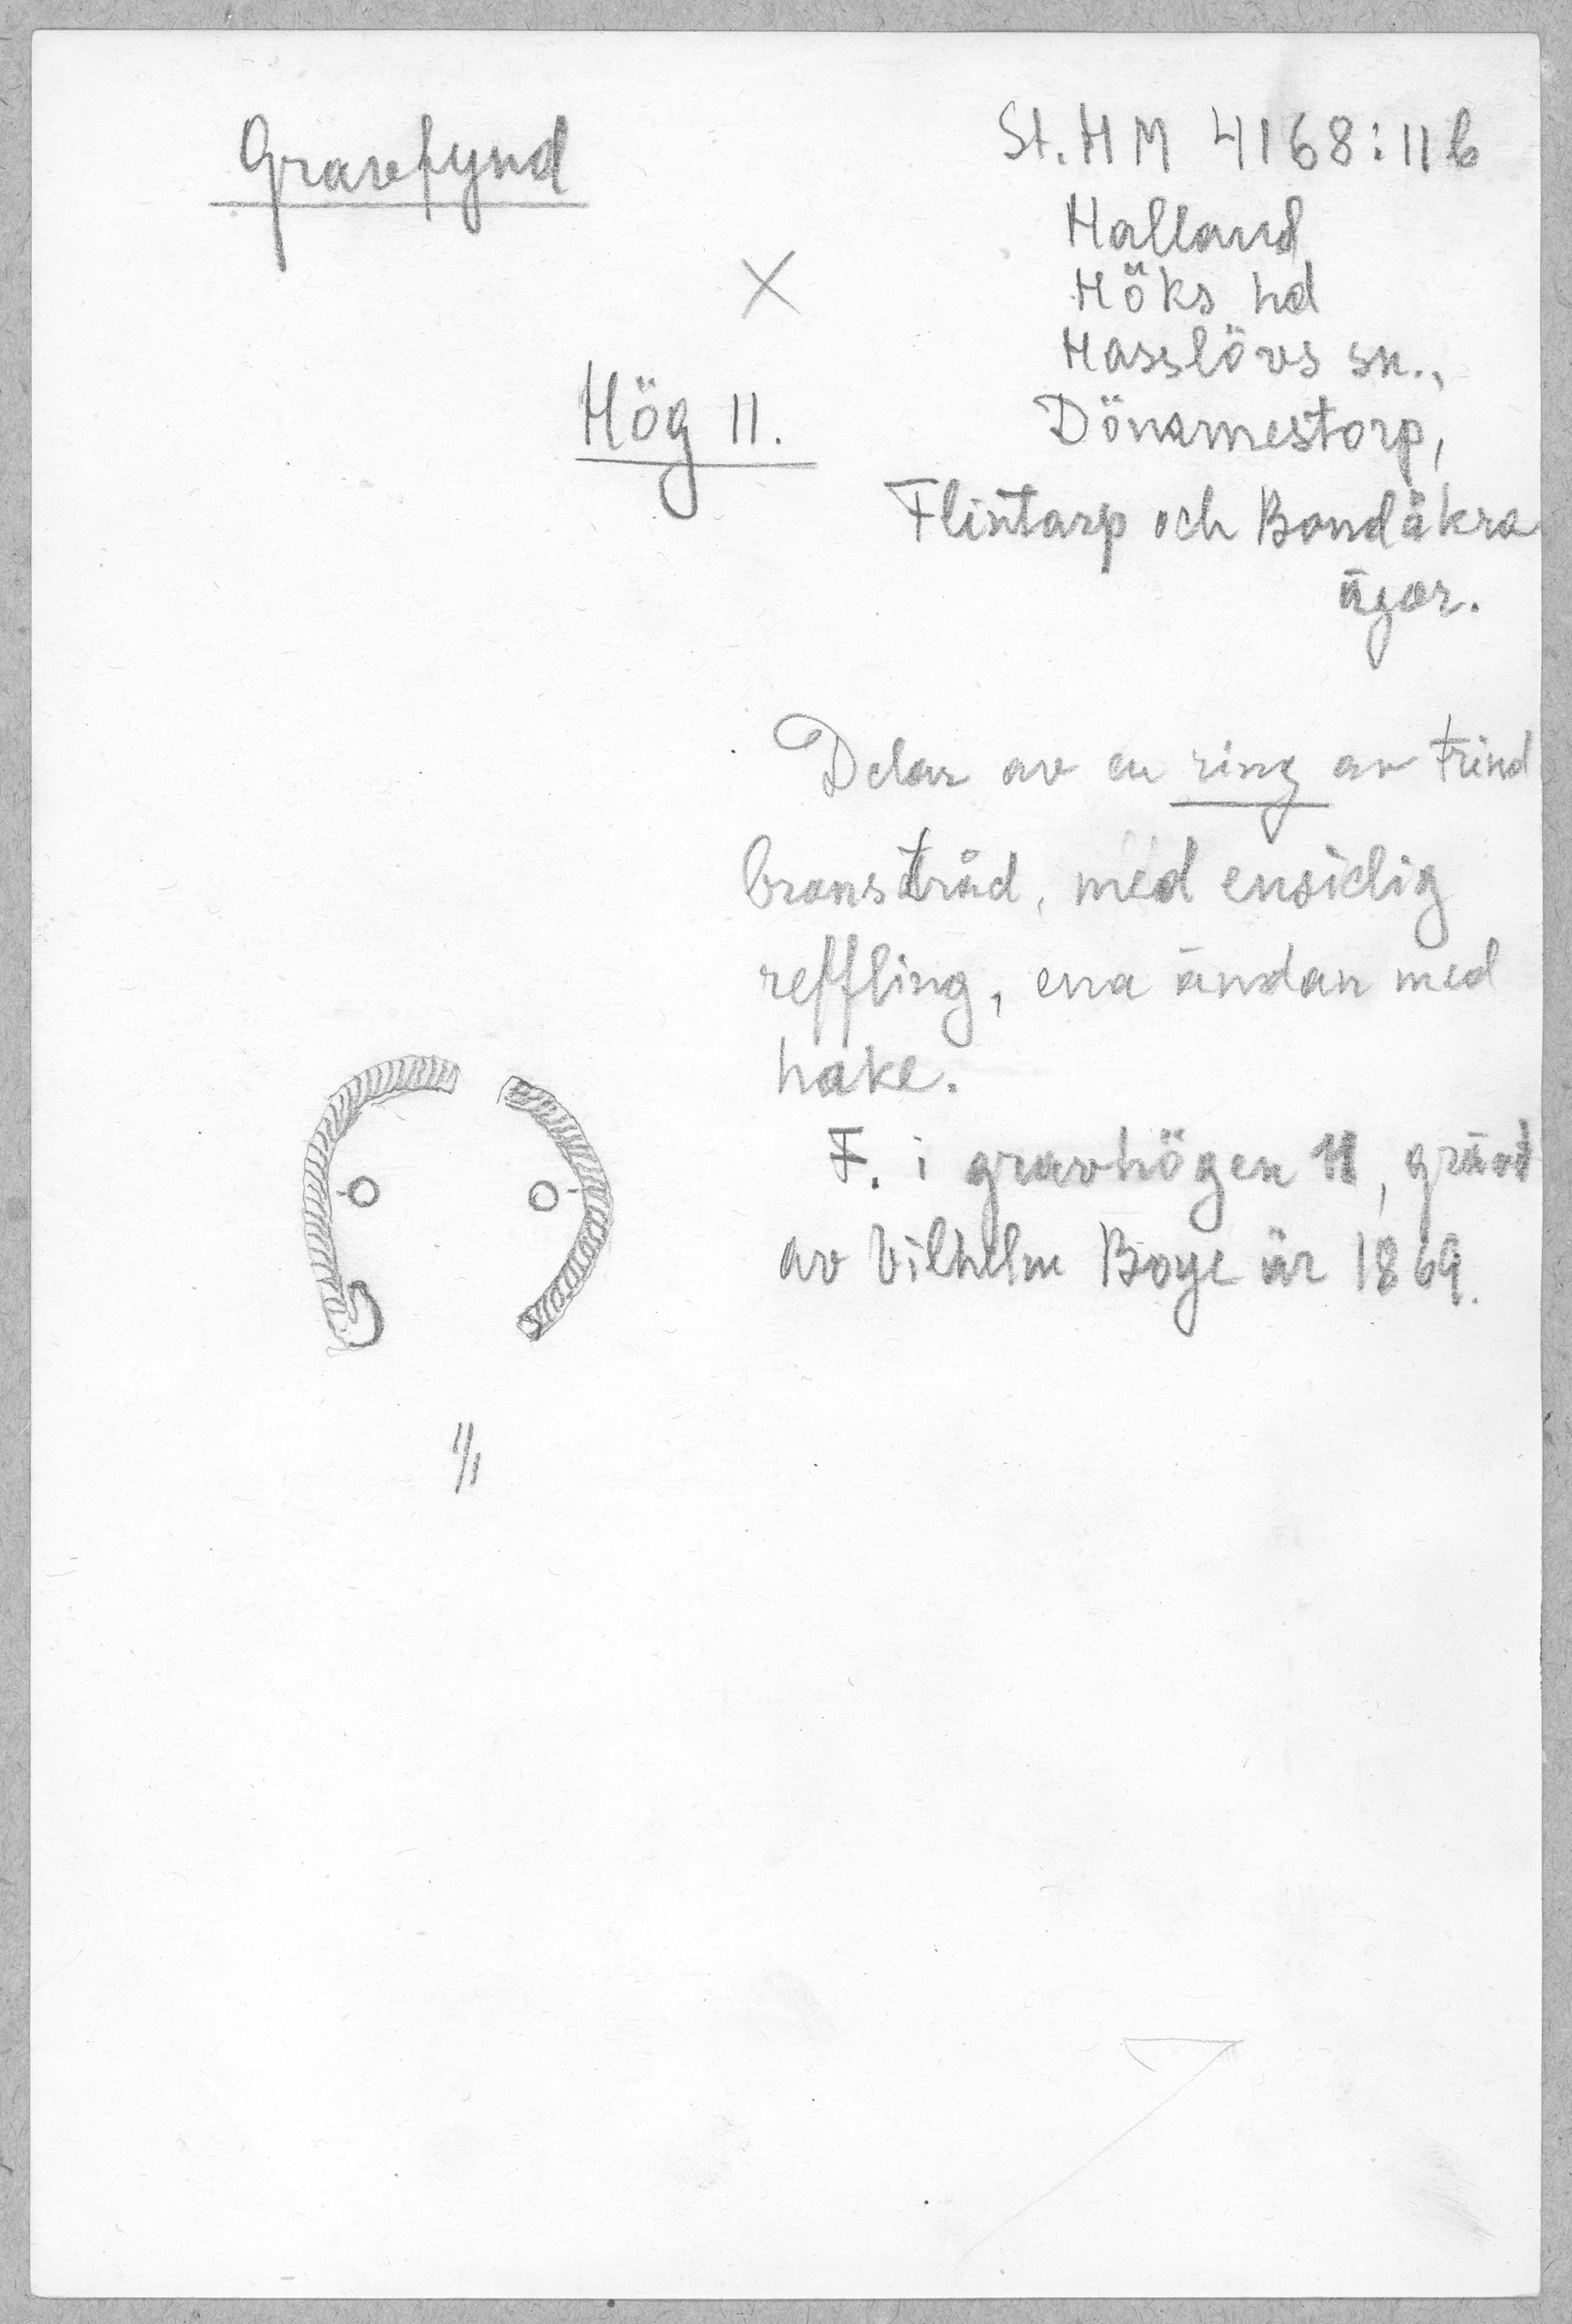 Gravfynd
St. H M 4168:11b
Halland
Höks hd
Hasslövs sn.,
Dömmestorp,
Flintarp och Bondåkra
ägor.
Hög 11.
Delar av en ring av trind
bronstråd, med ensidig
reffling, ena ändan med
hake.
F. i gravhögen 11, grävd
av Vilhelm Boye år 1869.
1/1